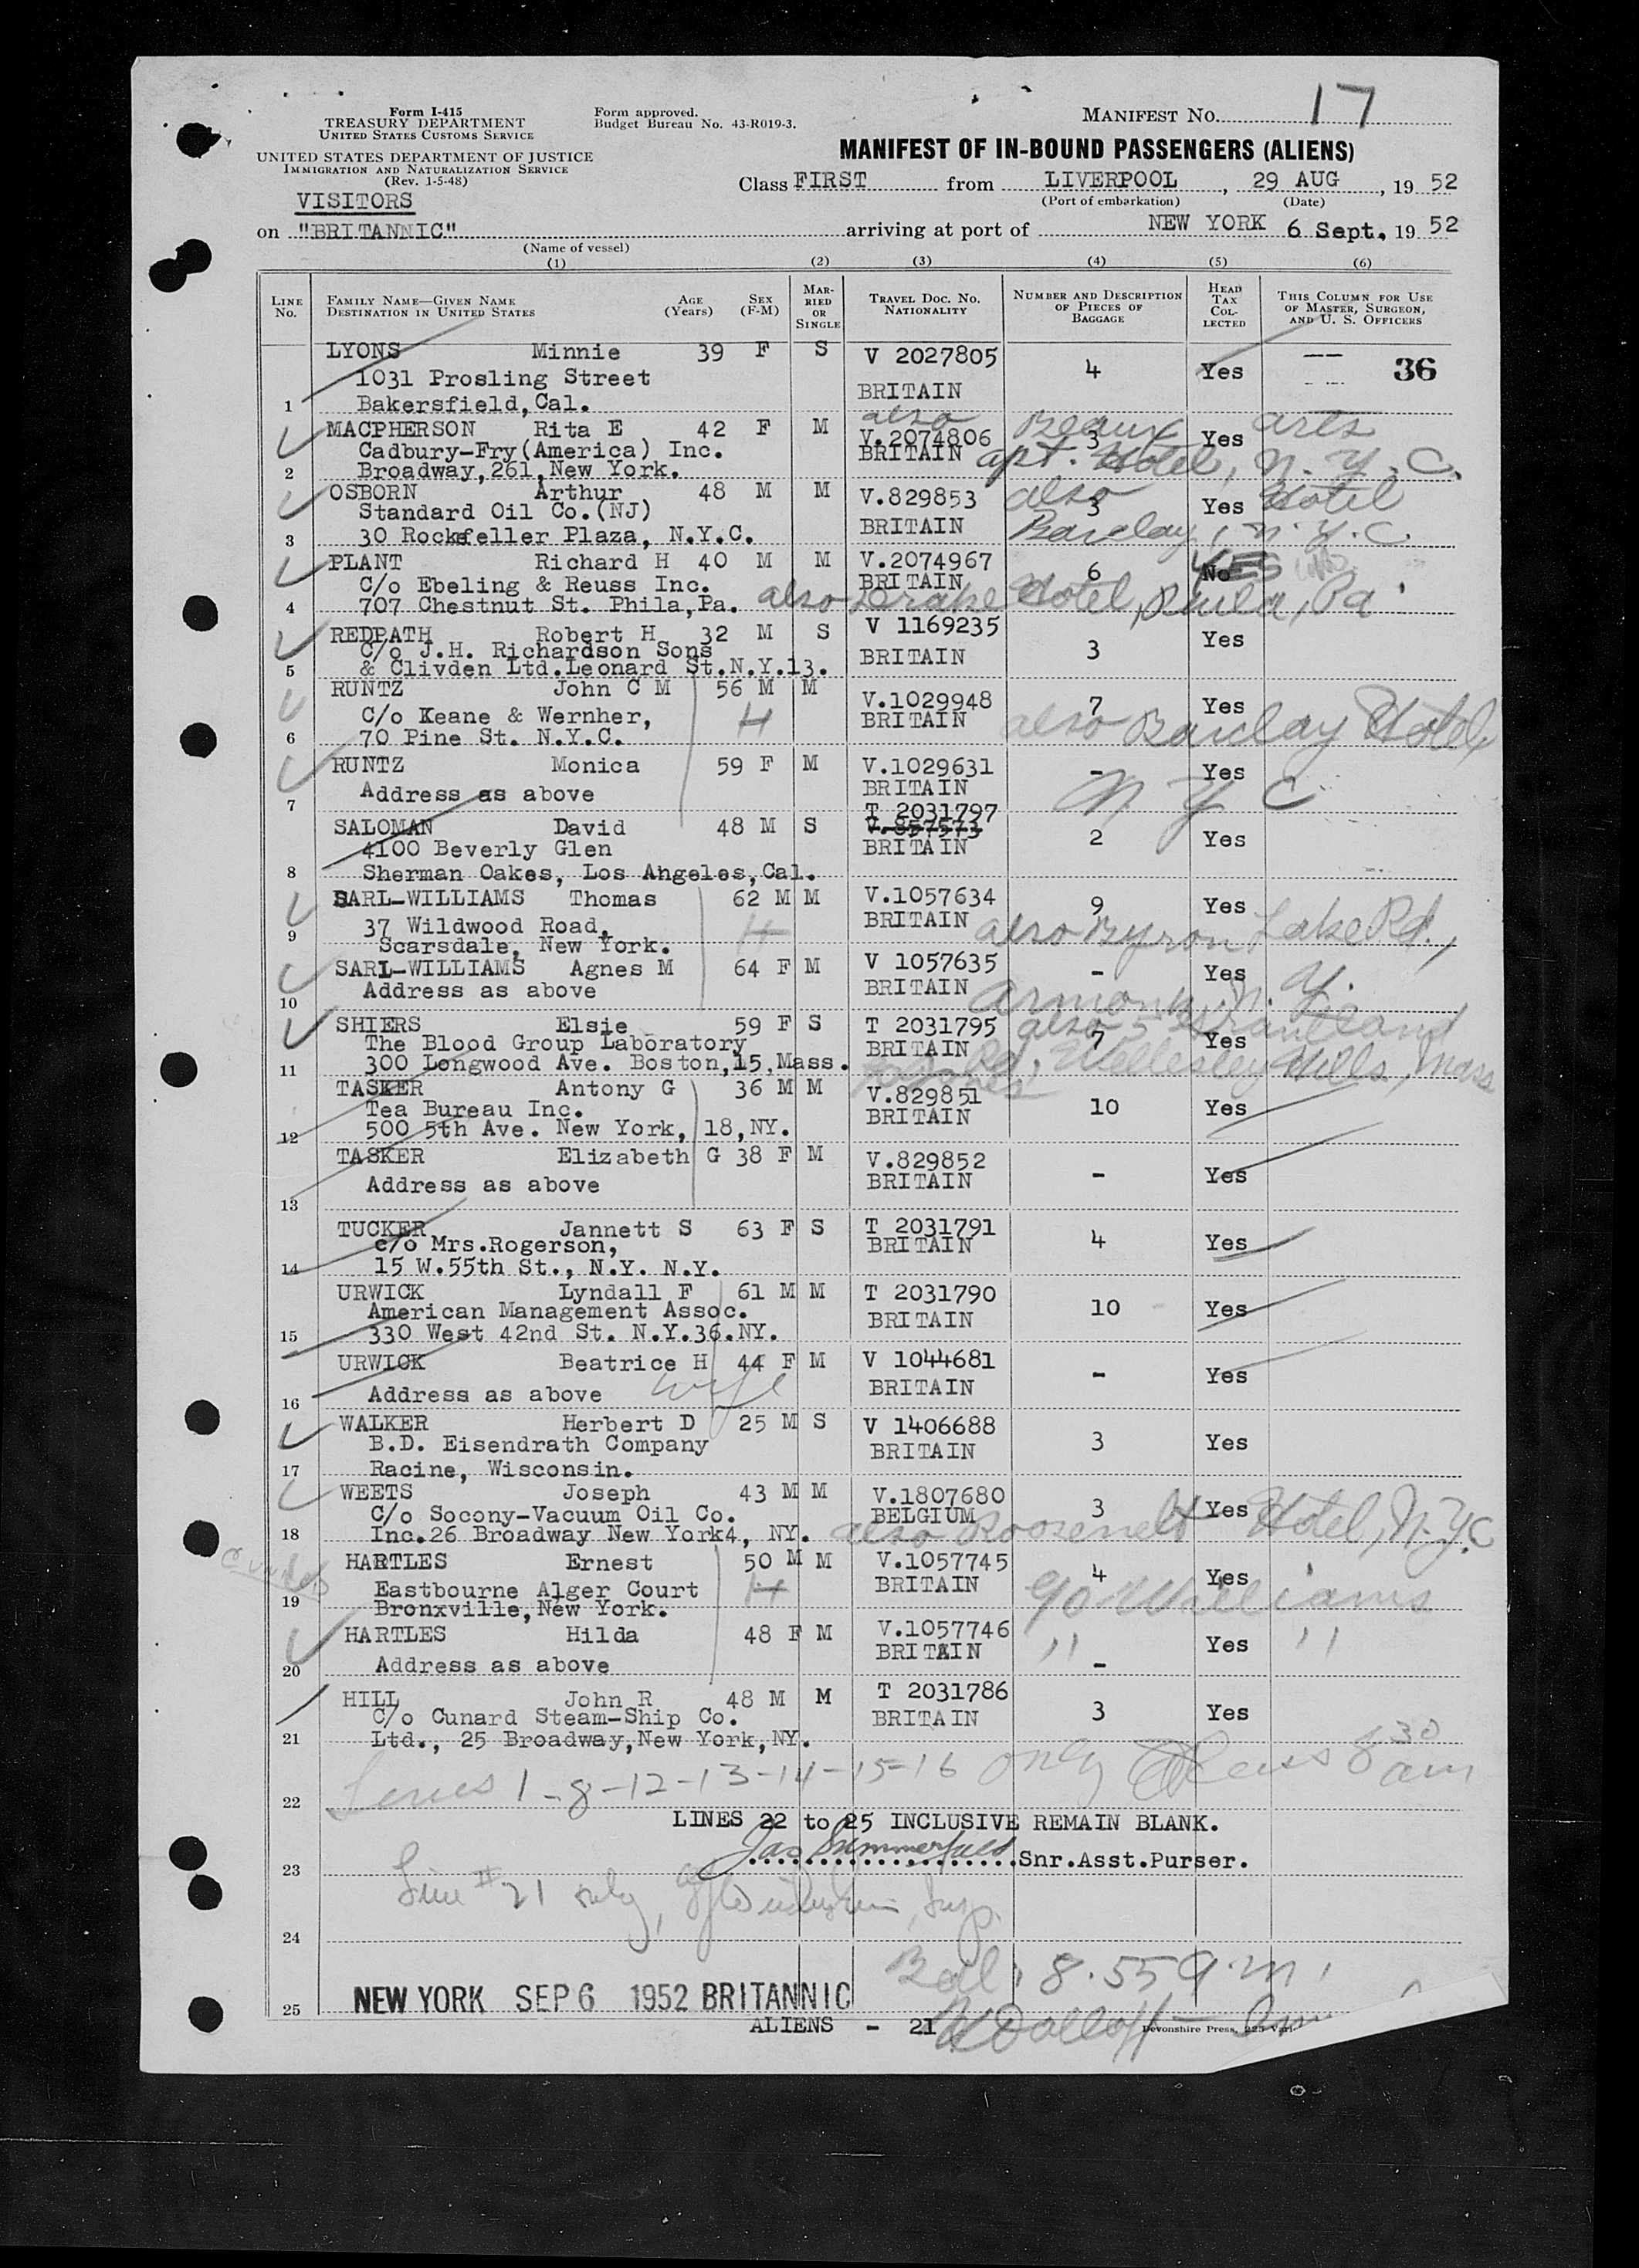 Form I-415
TREASURY DEPARTMENT
UNITED STATES CUSTOMS SERVICE
Form approved.
Budget Bureau No. 43-R019-3.
MANIFEST NO. 17
UNITED STATES DEPARTMENT OF JUSTICE
IMMIGRATION AND NATURALIZATION SERVICE
(Rev. 1-5-48)
MANIFEST OF IN-BOUND PASSENGERS (ALIENS)
VISITORS
Class FIRST from LIVERPOOL, 29 AUG, 19 52
(Port of embarkation) (Date)
on "BRITANNIC" arriving at port of NEW YORK 6 Sept. 19 52
(Name of vessel)
(1) (2) (3) (4) (5) (6)
LINE NO. FAMILY NAME—GIVEN NAME DESTINATION IN UNITED STATES AGE (Years) SEX (F-M) MARRIED OR SINGLE TRAVEL DOC. NO. NATIONALITY NUMBER AND DESCRIPTION OF PIECES OF BAGGAGE HEAD TAX COLLECTED THIS COLUMN FOR USE OF MASTER, SURGEON, AND U. S. OFFICERS
LYONS Minnie 39 F S V 2027805 4 Yes 36
1031 Prosling Street BRITAIN
1 Bakersfield, Cal.
MACPHERSON Rita E 42 F M V.2074806 3 Yes
Cadbury-Fry(America) Inc. BRITAIN
2 Broadway,261,New York.
also Beaux arts
apt. Hotel, N.Y.C.
OSBORN Arthur 48 M M V.829853 3 Yes
Standard Oil Co.(NJ) BRITAIN
3 30 Rockefeller Plaza, N.Y.C.
also Hotel
Barclay, N.Y.C.
PLANT Richard H 40 M M V.2074967 6 No YES
C/o Ebeling & Reuss Inc. BRITAIN
4 707 Chestnut St. Phila,Pa. also Drake Hotel, Phila, Pa
REDPATH Robert H 32 M S V 1169235 3 Yes
C/o J.H. Richardson Sons BRITAIN
5 & Clivden Ltd.Leonard St.N.Y.13.
RUNTZ John C M 56 M M V.1029948 7 Yes
C/o Keane & Wernher, H BRITAIN
6 70 Pine St. N.Y.C. also Barclay Hotel,
RUNTZ Monica 59 F M V.1029631 - Yes
Address as above BRITAIN N Y C
7
SALOMAN David 48 M S T 2031797 V.857573 2 Yes
4100 Beverly Glen BRITAIN
8 Sherman Oakes, Los Angeles,Cal.
SARL-WILLIAMS Thomas 62 M M V.1057634 9 Yes
37 Wildwood Road, H BRITAIN
9 Scarsdale, New York. also Byron Lake Rd.,
SARL-WILLIAMS Agnes M 64 F M V 1057635 - Yes
Address as above BRITAIN
10 Armonk, N.Y.
SHIERS Elsie 59 F S T 2031795 7 Yes
The Blood Group Laboratory BRITAIN
11 300 Longwood Ave. Boston,15,Mass.
also 5
Rd, Wellesley Hills, Mass
TASKER Antony G 36 M M V.829851 10 Yes
Tea Bureau Inc. BRITAIN
12 500 5th Ave. New York, 18,NY.
TASKER Elizabeth G 38 F M V.829852 - Yes
Address as above BRITAIN
13
TUCKER Jannett S 63 F S T 2031791 4 Yes
c/o Mrs.Rogerson, BRITAIN
14 15 W.55th St., N.Y. N.Y.
URWICK Lyndall F 61 M M T 2031790 10 Yes
American Management Assoc. BRITAIN
15 330 West 42nd St. N.Y.36.NY.
URWICK Beatrice H 44 F M V 1044681 - Yes
Address as above wife BRITAIN
16
WALKER Herbert D 25 M S V 1406688 3 Yes
B.D. Eisendrath Company BRITAIN
17 Racine, Wisconsin.
WEETS Joseph 43 M M V.1807680 3 Yes
C/o Socony-Vacuum Oil Co. BELGIUM
18 Inc.26 Broadway New York4, NY. also Roosevelt Hotel, N.Y.C
HARTLES Ernest 50 M M V.1057745 4 Yes
Eastbourne Alger Court H BRITAIN
19 Bronxville,New York. c/o Williams
HARTLES Hilda 48 F M V.1057746 - Yes
Address as above BRITAIN " "
20
HILL John R 48 M M T 2031786 3 Yes
C/o Cunard Steam-Ship Co. BRITAIN
21 Ltd., 25 Broadway,New York,NY.
Lines 1-8-12-13-14-15-16 only 8 30 am
22
LINES 22 to 25 INCLUSIVE REMAIN BLANK.
Jas Summerfield Snr.Asst.Purser.
23
Line # 21 only, Insp.
24
Bal. 8.55 a.m.
25 NEW YORK SEP 6 1952 BRITANNIC
ALIENS - 21
Devonshire Press, 225 Vari